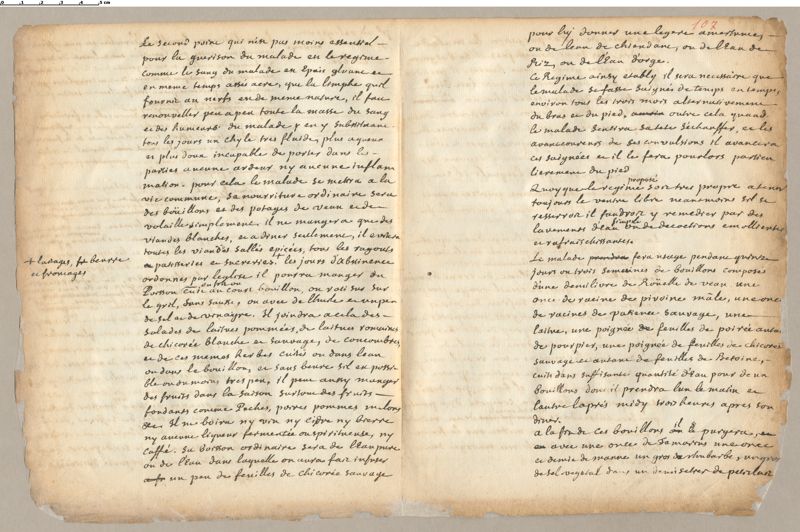 Le second point qui n'est pas moins essentiel
pour la guerison du malade est le regime
comme le sang du malade est épais gluant et
en meme temps assés acre, que la limphe quil
fournit au nerfs est de meme nature, il faut
renouveller peu a peu toute la masse du sang
et des humeurs du malade y en y substituant
tous les jours un chyle tres fluide, plus aqueux
et plus doux incapable de porter dans les
parties aucune ardeur ny aucune inflam
mation. pour cela le malade se mettra a la
vie commune, sa nourriture ordinaire sera
des boüillons et des potages de veau et de
volaille simplement. il ne mangera que des
viandes blanches, et a diner seulement, il evitera
toutes les viandes sallés epicées, tous les ragouts
patisseries et sucreries. + les jours d'abstinence
+ laitages, beurre
et fromages
ordonnés par leglise il pourra manger du
Poisson cuit au court bouillon, ou roti sur
le gril, sans sauce, ou avec de l'huile et un peu
de sel et de vinaigre. Il joindra a cela des
salades de laitues pommées, de laitues romaines
de chicorée blanche et sauvage, de concombres,
et de ces memes herbes cuites ou dans leau
ou dans le bouillon, et sans beurre sil est possi
ble ou du moins tres peu, il peut aussy manger
des fruits dans la saison surtout des fruits
fondants comme Peches, poires pommes melons
&c. Il ne boira ny vin ny cydre ny bierre
ny aucune liqueur fermentée ou spiritueuse, ny
caffé. sa boisson ordinaire sera de l'eau pure
ou de l'eau dans laquelle on aura fait infuser
un peu de feuilles de chicorée sauvage
107
pour luy donner une legere amertume,
ou de leau de chiendant, ou de l'eau de
Riz, ou de l'eau d'orge.
Ce Regime ainsy etably il sera necessaire que
le malade se fasse saigner de temps en temps,
environ tous les trois mois alternativement
du bras et du pied, outre cela quand
le malade sentira sa tete s'echauffer, et les
avancoureurs de ses convulsions il avancera
ces saignées et il le fera pour lors particu
lierement du pied
proposé
Quoy que le regime soit tres propre a tenir
toujours le ventre libre neanmoins sil se
resserroit il faudroit y remedier par des
simple
lavements d'eau ou de decoctions emollientes
et rafraichissantes.
Le malade fera usage pendant quinze
jours ou trois semaines de bouillons composés
d'une demi livre de Roüelle de veau une
once de racine de pivoine mâle, une once
de racines de patience sauvage, une
laitue, une poignée de feuilles de poirée autant
de pourpier, une poignée de feuilles de chicorée
sauvage et autant de feuilles de Betoine,
cuits dans suffisante quantité d'eau pour deux
bouillons dont il prendra lun le matin et
l'autre laprés midy trois heures apres son
diner.
a la fin de ces bouillons on le purgera,
avec une once de Tamarins une once
et demie de manne un gros de rhubarbe, un gros
de sel vegetal dans un demi setier de petit lait